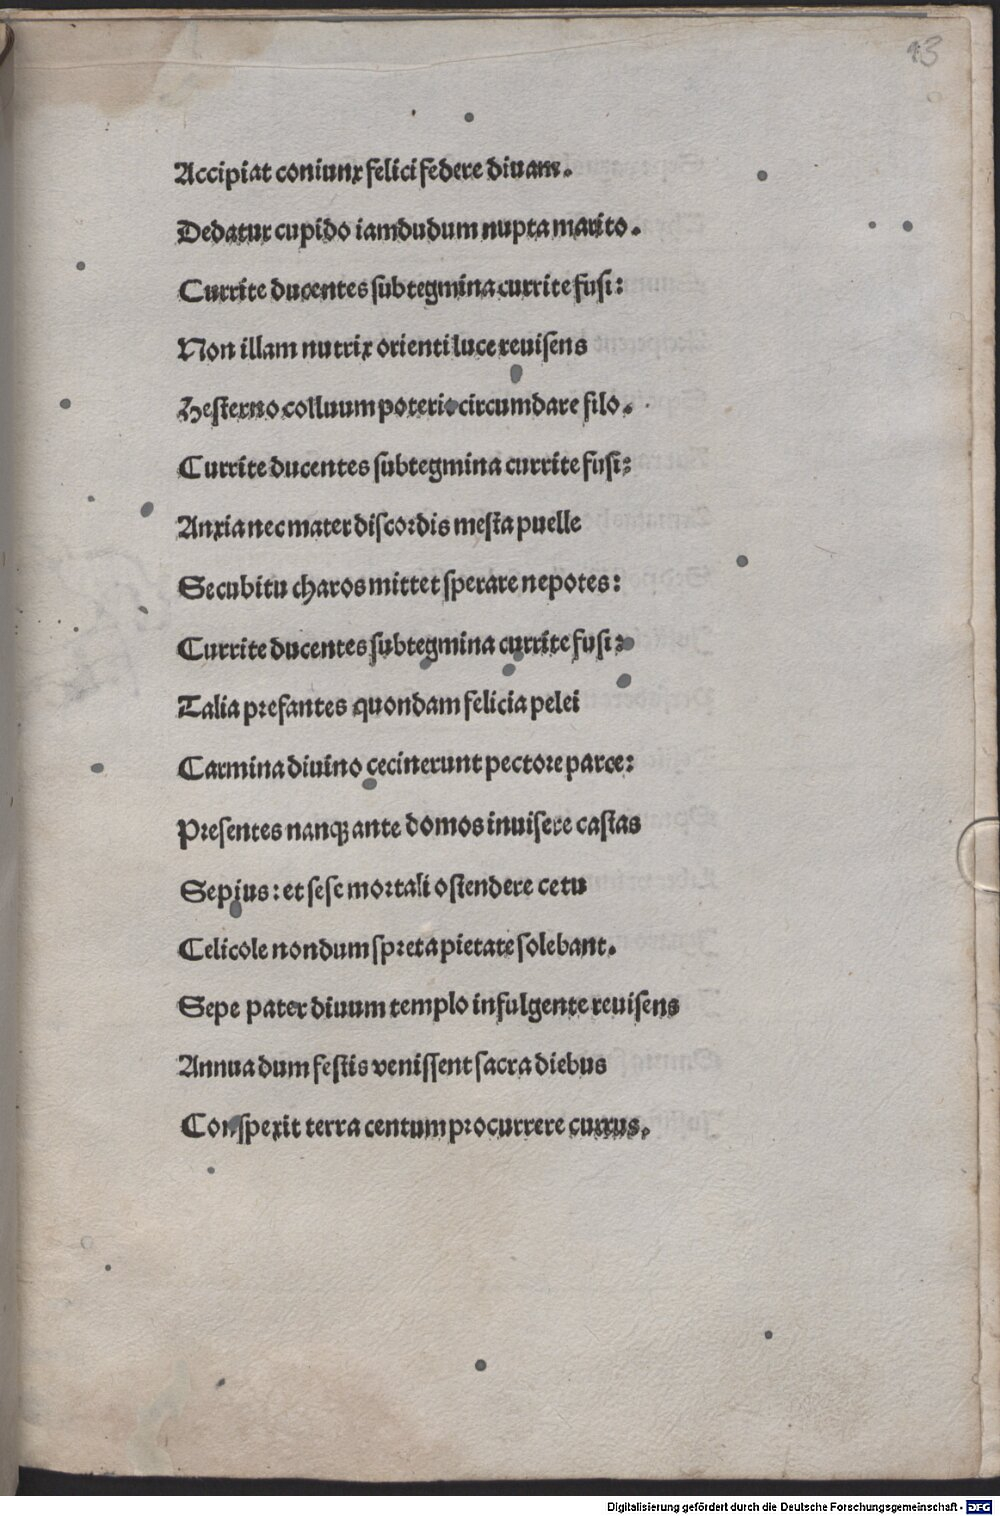 13
Accipiat coniunx felici federe diuam.
Dedatur cupido iamdudum nupta marito.
Currite ducentes subtegmina currite fusi:
Non illam nutrix orienti luce reuisens
Hesterno colluum poterit circumdare filo.
Currite ducentes subtegmina currite fusi:
Anxia nec mater discordis mesta puelle
Secubitu charos mittet sperare nepotes:
Currite ducentes subtegmina currite fusi:
Talia prefantes quondam felicia pelei
Carmina diuino cecinerunt pectore parce:
Presentes nanqꝫ ante domos inuisere castas
Sepius: et sese mortali ostendere cetu
Celicole nondum spreta pietate solebant.
Sepe pater diuum templo infulgente reuisens
Annua dum festis venissent sacra diebus
Conspexit terra centum procurrere currus.
Digitalisierung gefördert durch die Deutsche Forschungsgemeinschaft - DFG